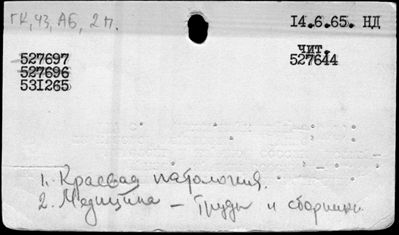 ГК, ЧЗ, АБ, 2 п.
14.6.65. НД
чит.
527697
527644
527696
531265
1. Краевая патология.
2. Медицина – Труды и сборники